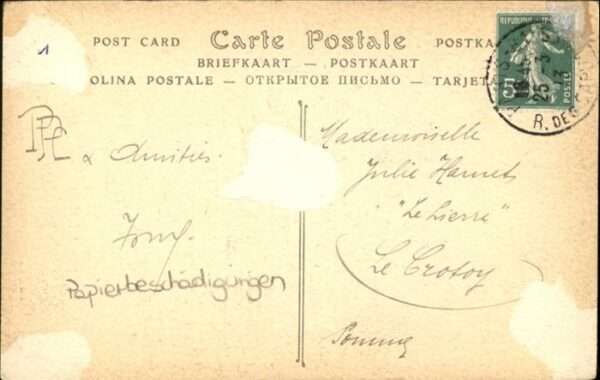 1
POST CARD Carte Postale POSTKA
BRIEFKAART — POSTKAART
OLINA POSTALE — ОТКРЫТОЕ ПИСЬМО — TARJETA
& Amitiés.
Papierbeschädigungen
Mademoiselle
Julie Hamet
"Le Lierre"
Le Crotoy
Somme
REPUBLIQUE
5
18
25 3
13
R. DES